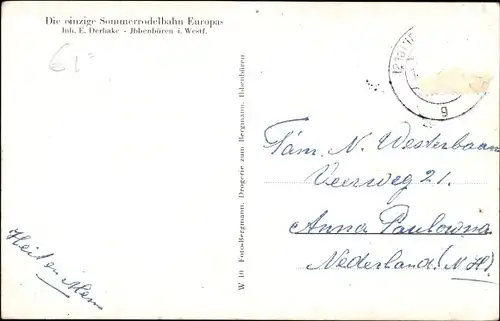 Die einzige Sommerrodelbahn Europas
Inh. E. Derhake - Jbbenbüren i. Westf.
61
W 10 Foto-Bergmann, Drogerie zum Bergmann, Ibbenbüren
g
Fam. N. Westerbaan
Veerweg 21.
Anna Paulowna
Nederland! (N.H)